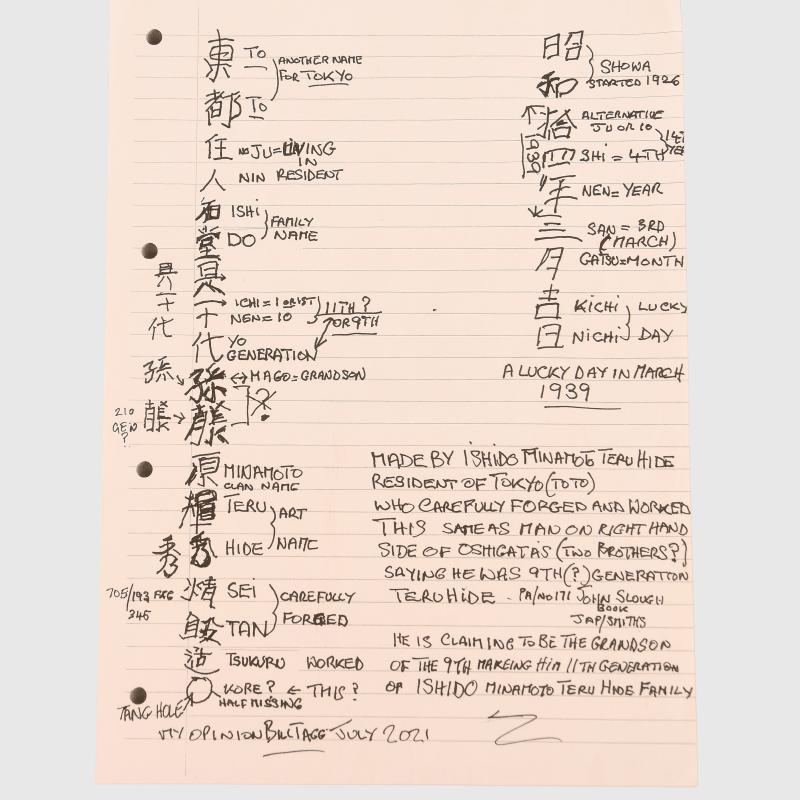 東 TO
ANOTHER NAME
FOR TOKYO
都 TO
住 JU = LIVING
IN
人 NIN RESIDENT
石 ISHI
堂 DO
FAMILY
NAME
是
一 ICHI = 1 OR 1ST
十 NEN = 10
11TH ?
OR 9TH
代 YO
GENERATION
孫 ↔ MAGO = GRANDSON
?
是
一
十
代
孫
210
GEN
?
原 MINAMOTO
CLAN NAME
輝 TERU
秀 秀 HIDE
ART
NAME
705/193 FIG
345
精 SEI
鍛 TAN
CAREFULLY
FORGED
造 TSUKURU WORKED
KORE? ← THIS ?
HALF MISSING
TANG HOLE
MY OPINION BILL TAGG JULY 2021
昭
和
SHOWA
STARTED 1926
拾 ALTERNATIVE
JU OR 10
四 SHI = 4TH
1939
年 NEN = YEAR
三 SAN = 3RD
(MARCH)
月 GATSU = MONTH
吉 KICHI
日 NICHI
LUCKY
DAY
A LUCKY DAY IN MARCH
1939
MADE BY ISHIDO MINAMOTO TERU HIDE
RESIDENT OF TOKYO (TOTO)
WHO CAREFULLY FORGED AND WORKED
THIS SAME AS MAN ON RIGHT HAND
SIDE OF OSHIGATA'S (TWO BROTHERS?)
SAYING HE WAS 9TH (?) GENERATION
TERU HIDE - PA/NO 171 JOHN SLOUGH
BOOK
JAP/SMITHS
HE IS CLAIMING TO BE THE GRANDSON
OF THE 9TH MAKEING HIM 11TH GENERATION
OF ISHIDO MINAMOTO TERU HIDE FAMILY